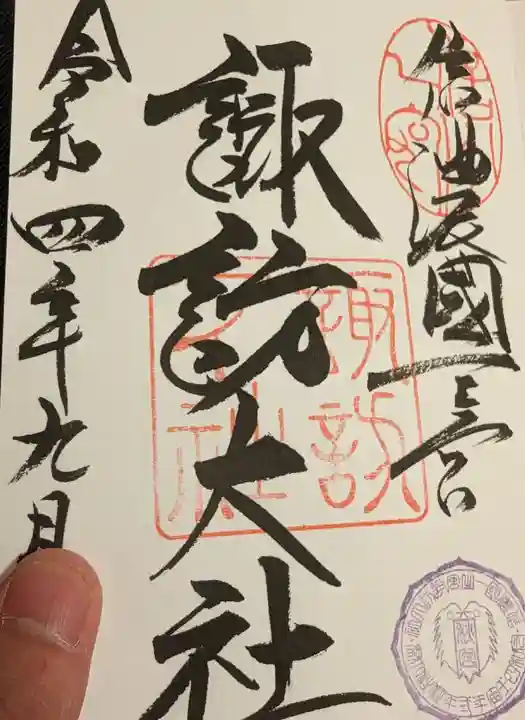 信濃國一之宮
諏訪大社
令和四年九月
諏訪
大社